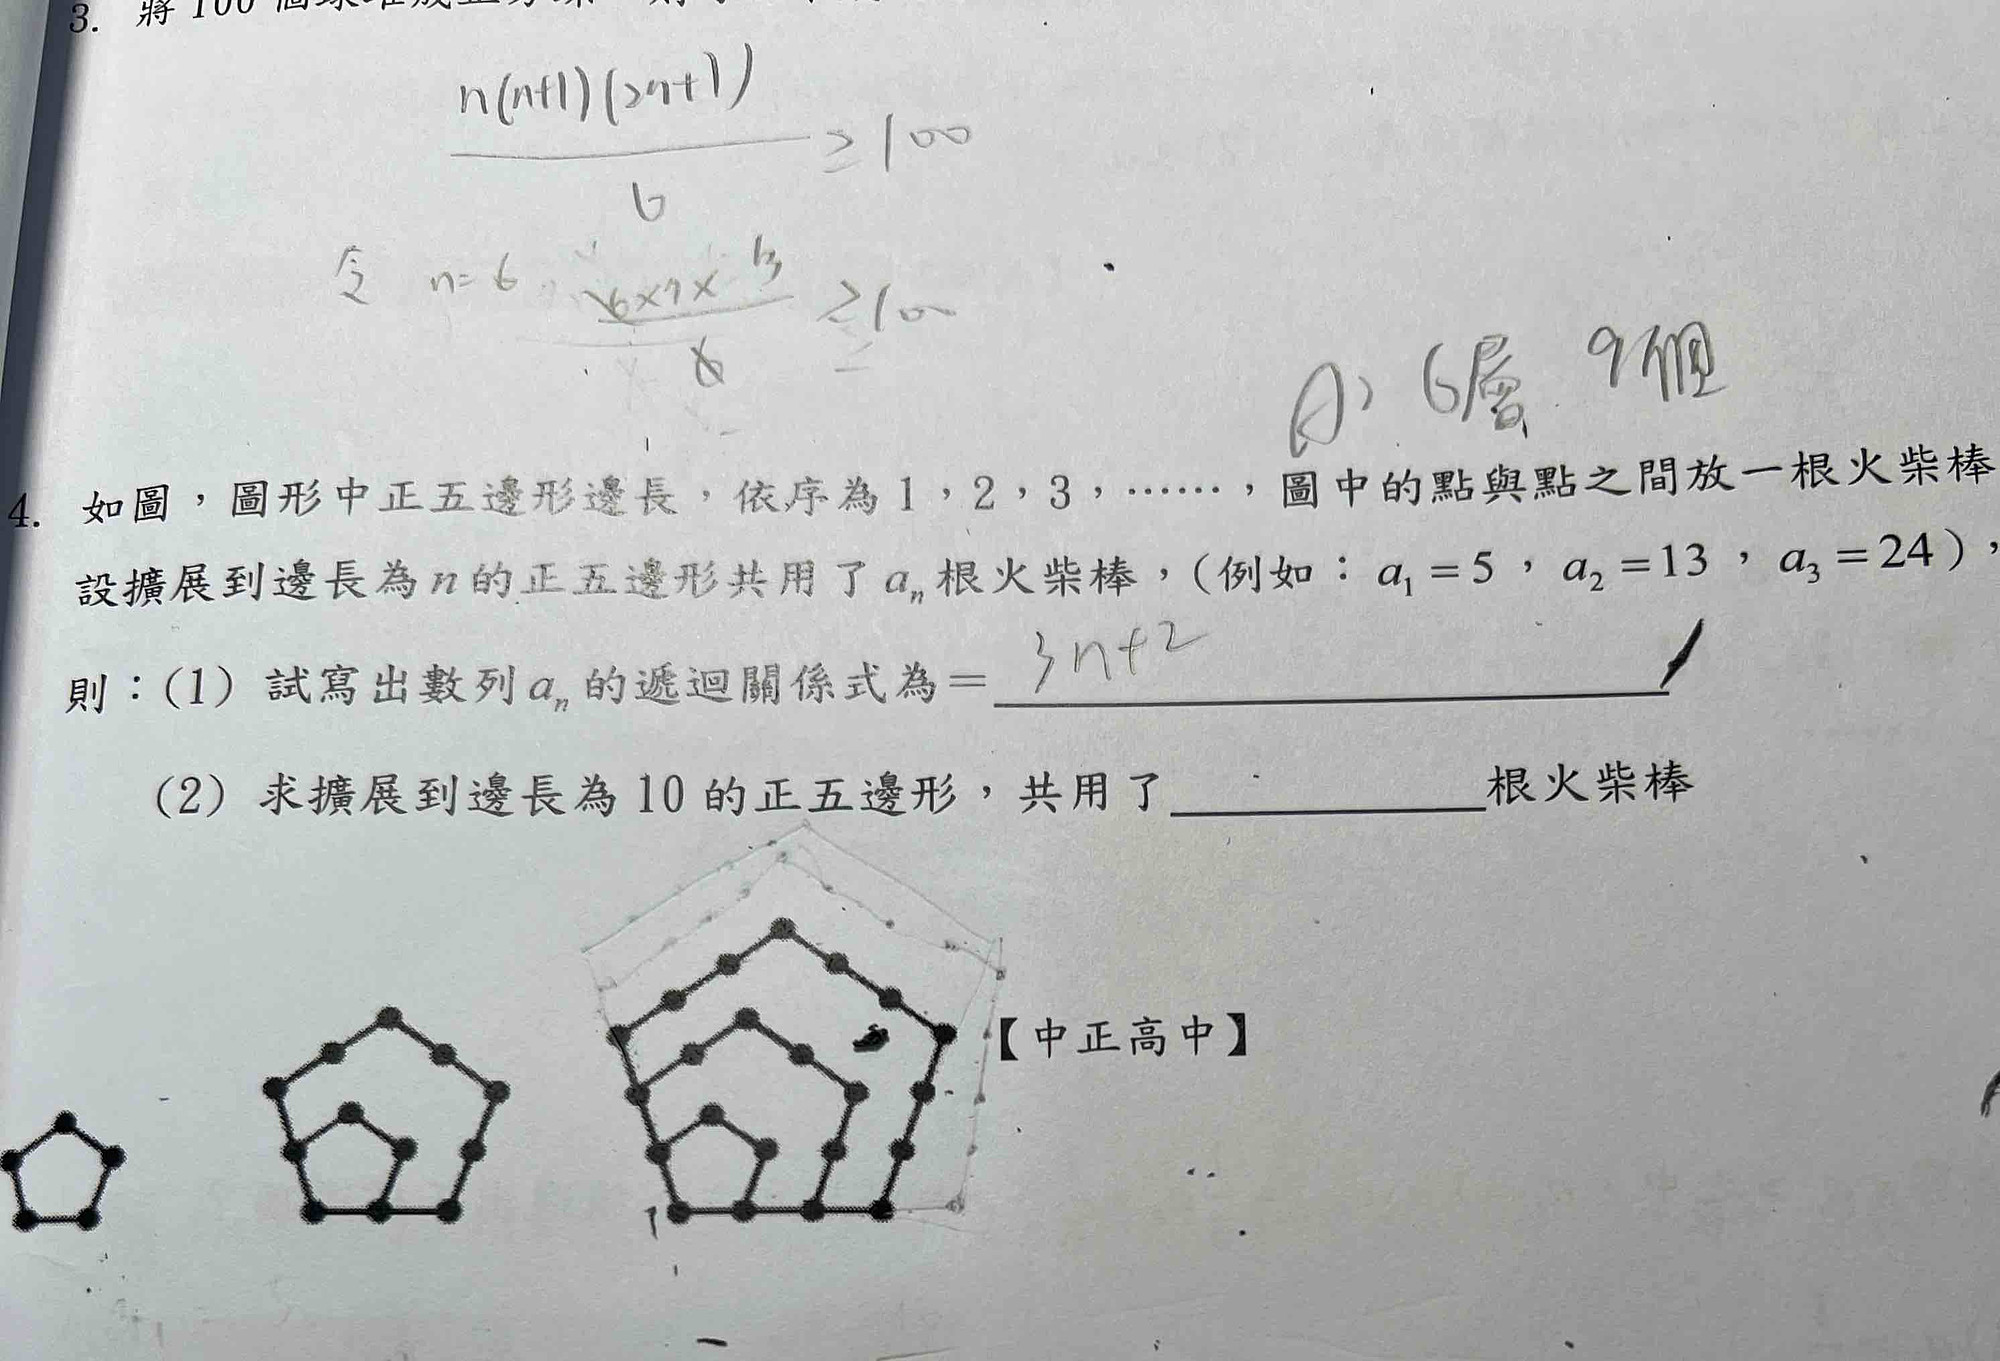 3. 將 100 個球堆成正方
n(n+1)(2n+1)
≥100
6
令 n=6 6×7×13 ≥100
6
A: 6層 9個
4. 如圖，圖形中正五邊形邊長，依序為 1，2，3，……，圖中的點與點之間放一根火柴棒
設擴展到邊長為 n 的正五邊形共用了 aₙ 根火柴棒，（例如：a₁ = 5，a₂ = 13，a₃ = 24），
則：(1) 試寫出數列 aₙ 的遞迴關係式為＝ 3n+2
(2) 求擴展到邊長為 10 的正五邊形，共用了＿＿＿＿根火柴棒
【中正高中】